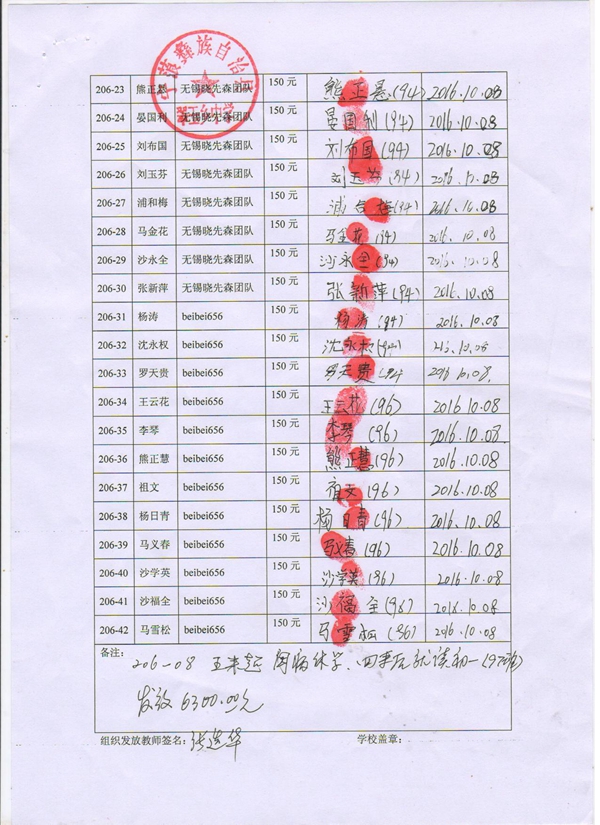 宁蒗彝族自治县
206-23 熊正慧 无锡晓先森团队 150 元 熊正慧(94) 2016.10.08
206-24 晏国利 无锡晓先森团队 150 元 晏国利(94) 2016.10.08
206-25 刘布国 无锡晓先森团队 150 元 刘布国(94) 2016.10.08
206-26 刘玉芬 无锡晓先森团队 150 元 刘玉芬(94) 2016.10.08
206-27 浦和梅 无锡晓先森团队 150 元 梅(94) 2016.10.08
206-28 马金花 无锡晓先森团队 150 元 马金花(94) 2016.10.08
206-29 沙永全 无锡晓先森团队 150 元 沙永全(94) 2016.10.08
206-30 张新萍 无锡晓先森团队 150 元 张新萍(94) 2016.10.08
206-31 杨涛 beibei656 150 元 杨涛(94) 2016.10.08
206-32 沈永权 beibei656 150 元 沈永权(94) 10.08
206-33 罗天贵 beibei656 150 元 罗天贵(94 2016 10.08.
206-34 王云花 beibei656 150 元 王云花(96) 2016.10.08
206-35 李琴 beibei656 150 元 李琴(96) 2016.10.08.
206-36 熊正慧 beibei656 150 元 熊正慧(96) 2016.10.08
206-37 祖文 beibei656 150 元 祖文(96) 2016.10.08
206-38 杨日青 beibei656 150 元 杨日青(96) 2016.10.08
206-39 马义春 beibei656 150 元 马义春(96) 2016.10.08
206-40 沙学英 beibei656 150 元 沙学英(96) 2016.10.08
206-41 沙福全 beibei656 150 元 沙福全(96) 2016.10.08
206-42 马雪松 beibei656 150 元 马雪松(96) 2016.10.08
备注: 206-08 因病休学、就读初一(97班)
发放6300.00元
组织发放教师签名: 学校盖章: